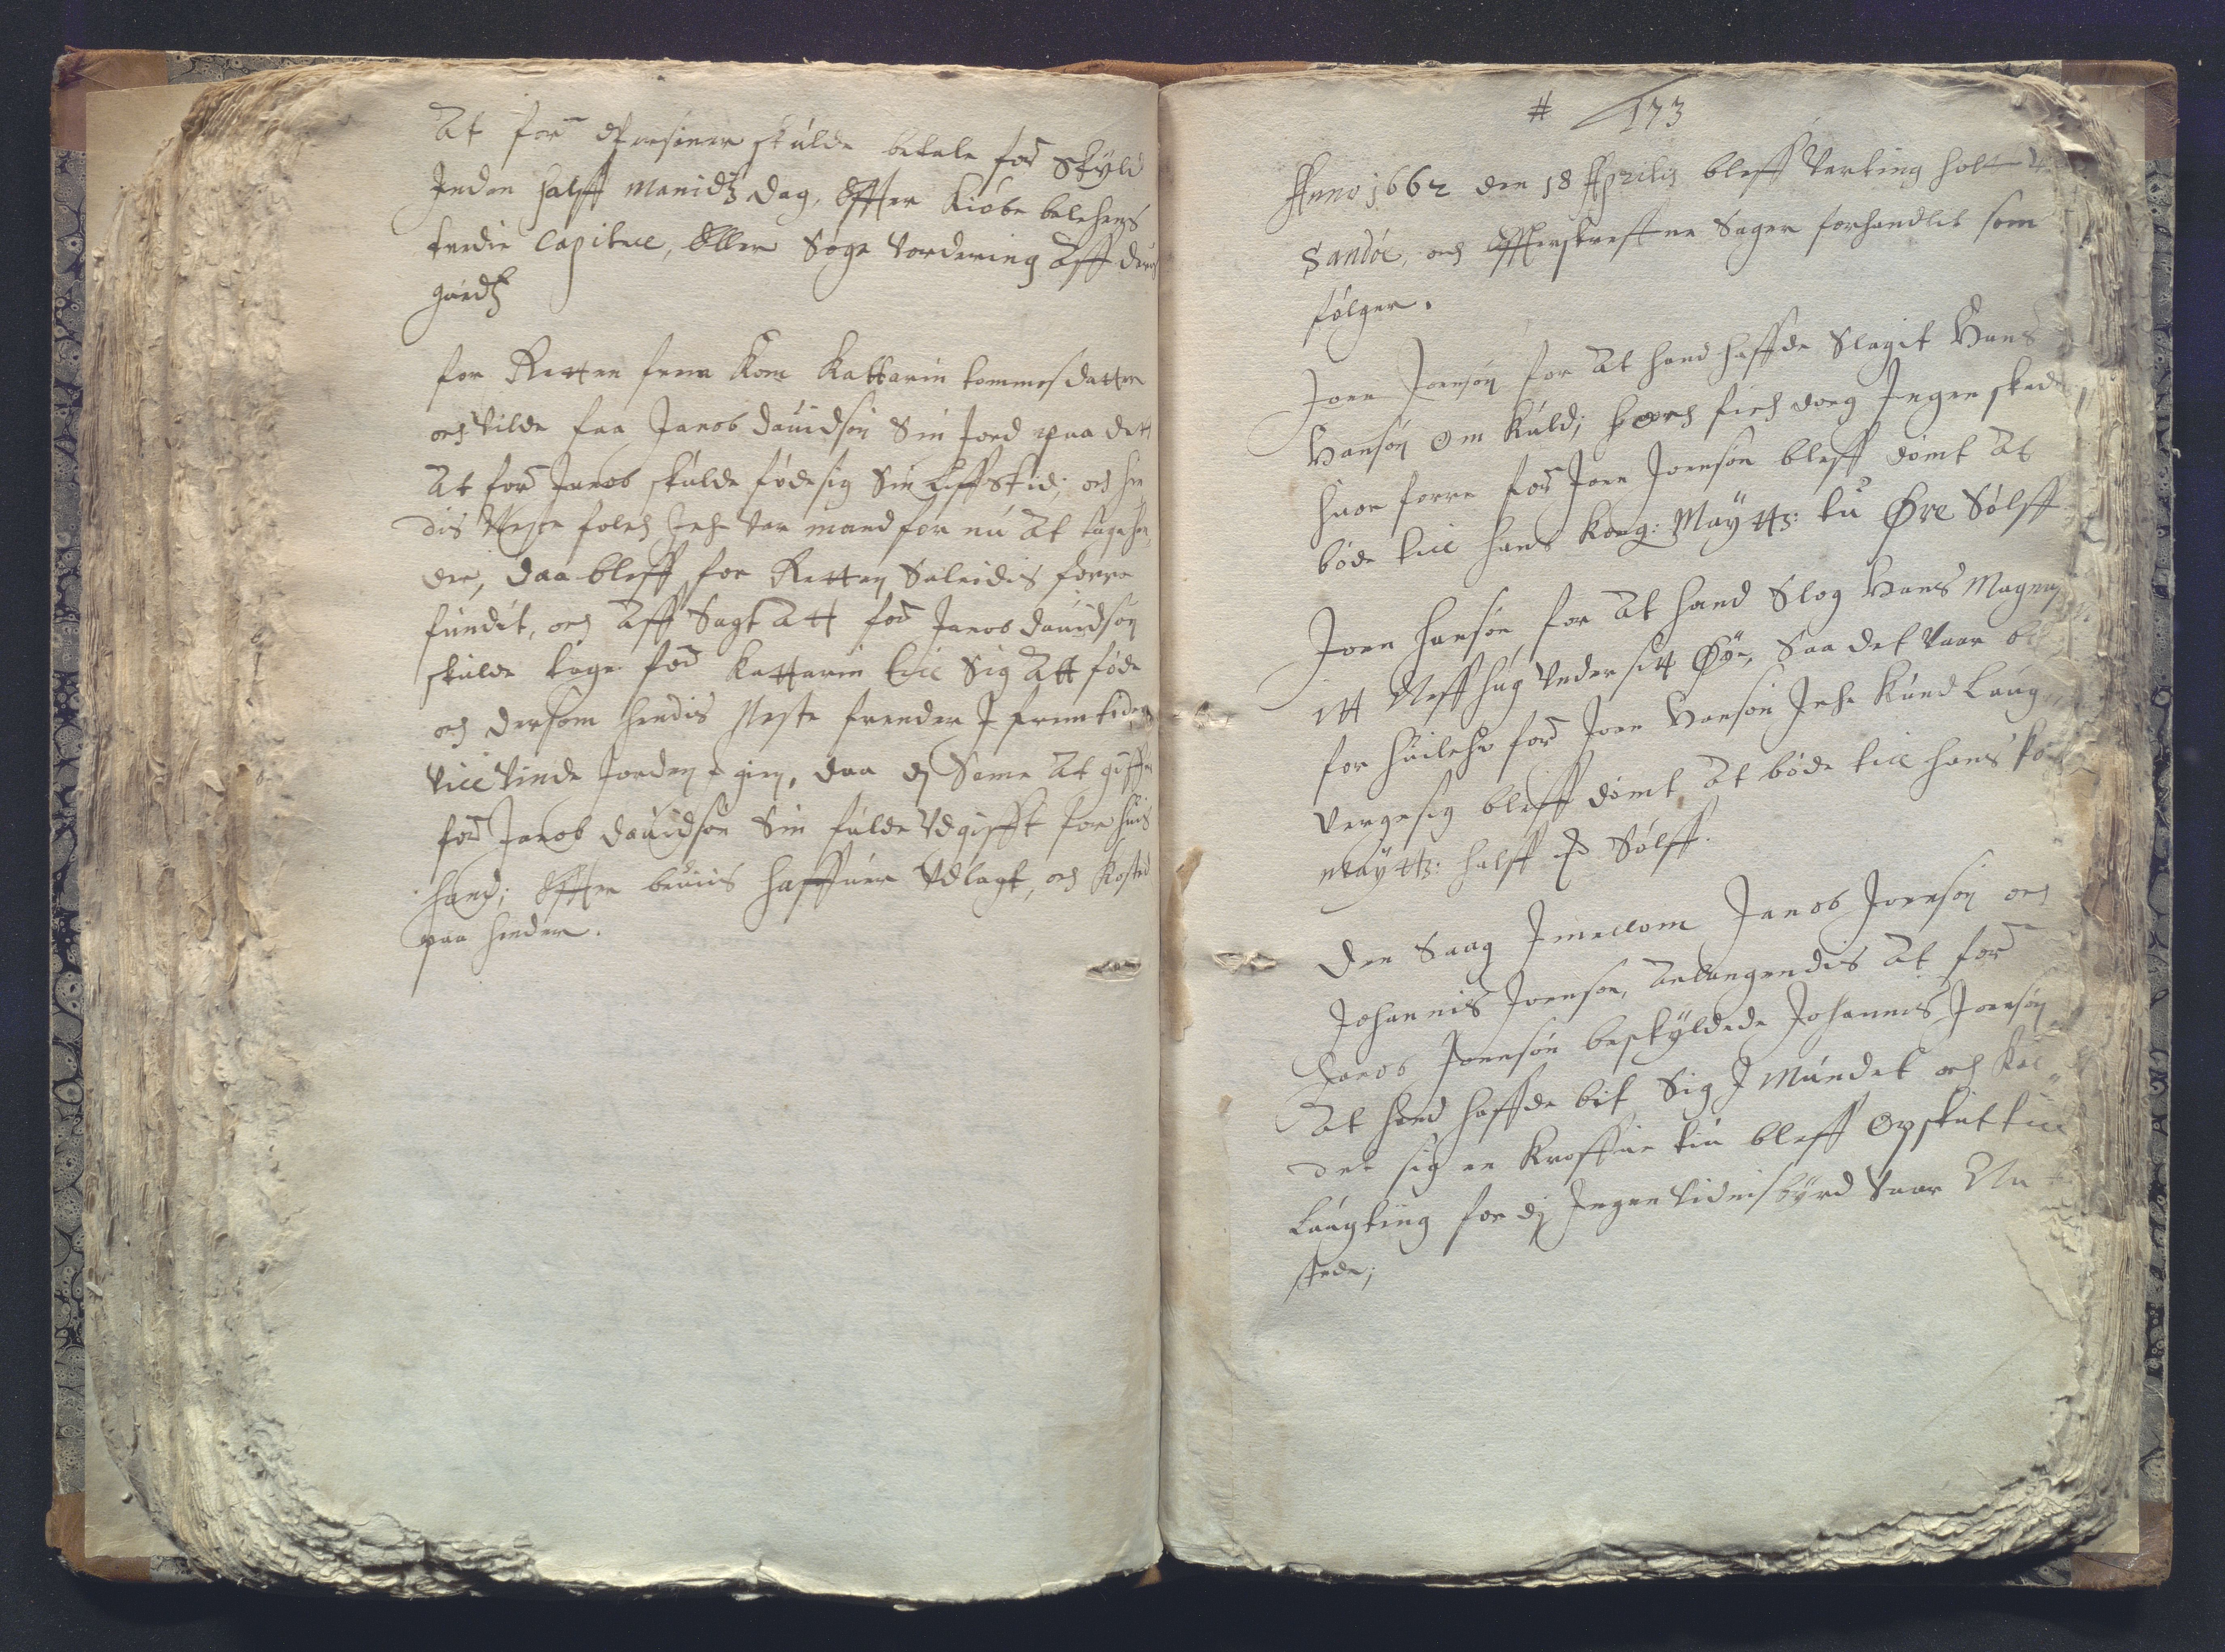 At for̄ skulde betale for̄ Skyld
Inden halff Manidtz Dag, Effter Kiøbe balchens
tredie Capitul, Eller Søge Vordering Aff deris
guedtz
for Retten frem Kom Kattarin tommesdatter
och Vilde faa Jacob Dauidsøn Sin Jord paa det
At for̄ Jacob skulde føde sig Sin Liffs tid; och hen
dis Neste folch Iche Var mand for nu At tage hen
der, Daa bleff for Retten Saaledis forre
fundit, och Aff Sagt Att for̄ Jacob Dauidsøn
skulde tage for̄ Kattarin till Sig Att føde
och dersom hendis Neste frender I fremtiden
Vill Vinde Jorden igien, daa dj Same At giffue
for̄ Jacob Dauidsøn Sin fulde Vdgifft for huis
hand; Effter beuiis haffuer Vdlagt, och Kosted
paa hender.
# 173
Anno 1662 den 18 Aprilis bleff Varting holt
Sandøe, och Effterskreffne Sager forhandlet som
følger.
Joen Joensøn for At hand haffde Slagit Hans
Hansøn om Kuld; fich doeg Ingen skade
huor forre for̄ Joen Joensøn bleff dømt At
bøde till hans Kong: Maÿtts: tu Øre Sølff
Joen Hansøn, for At hand Slog Hans
itt Neffhug Vnder sitt Øye, Saa det Vaar
for huilchet for̄ Joen Hansøn Iche Kund
Vergesig bleff dømt At bøde till hans
Maÿtts: halff Sølff.
Den Saag Imellom Jacob Joensøn och
Johannis Joensøn, Anlangendis At for̄
Jacob Joensøn beskyldede Johannis Joensøn
At hand haffde bit Sig I Mundet och Kal
det sig en bleff Opskut till
Laugting for dj Ingen Vidnisbyrd Vaar
stede;